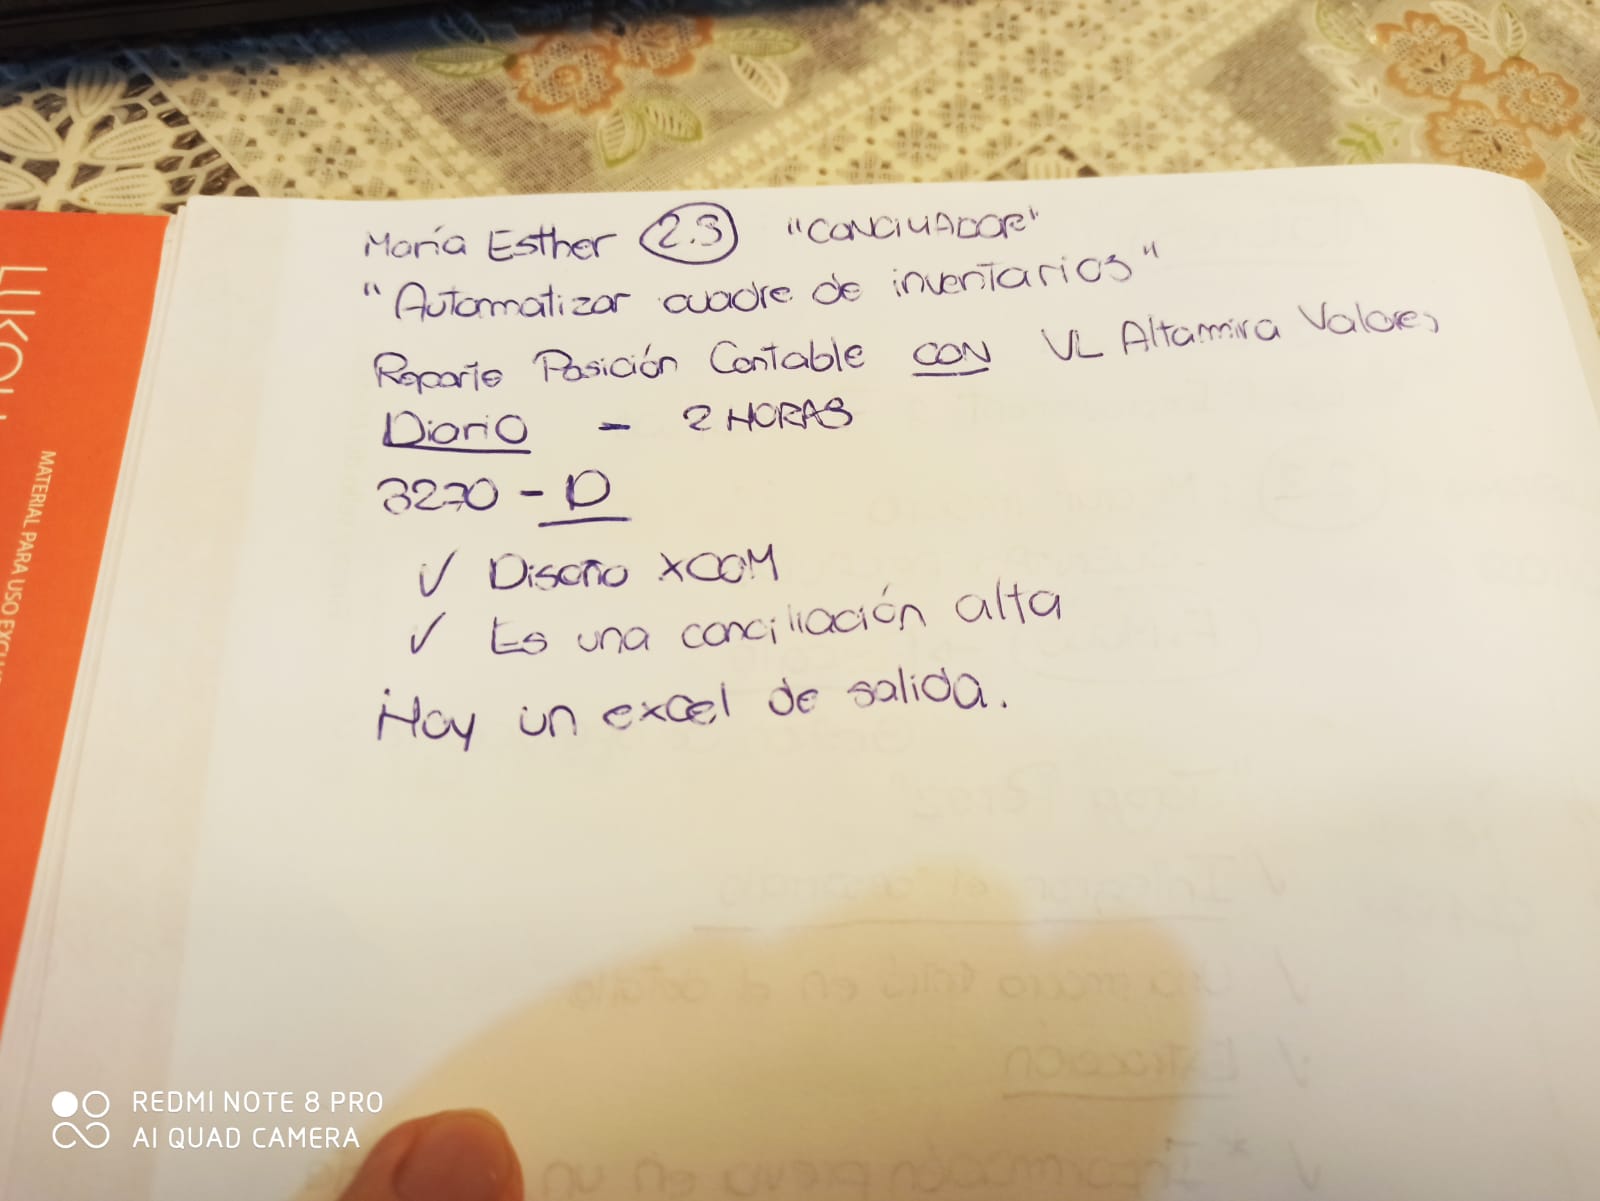 María Esther 2.3 "CONCILIADOR"
"Automatizar cuadre de inventarios"
Reporte Posición Contable CON VL Altamira Valores
Diario - 2 HORAS
3270 - D
✓ Diseño XCOM
✓ Es una conciliación alta
Hay un excel de salida.
LUKOIL
MATERIAL PARA USO
REDMI NOTE 8 PRO
AI QUAD CAMERA